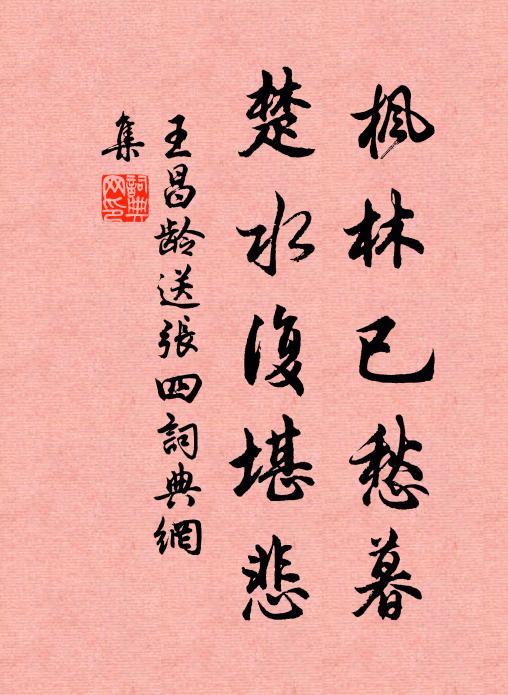 枫林已愁暮
楚水復堪悲
王昌龄送张四詞典網
集
詞典
网印